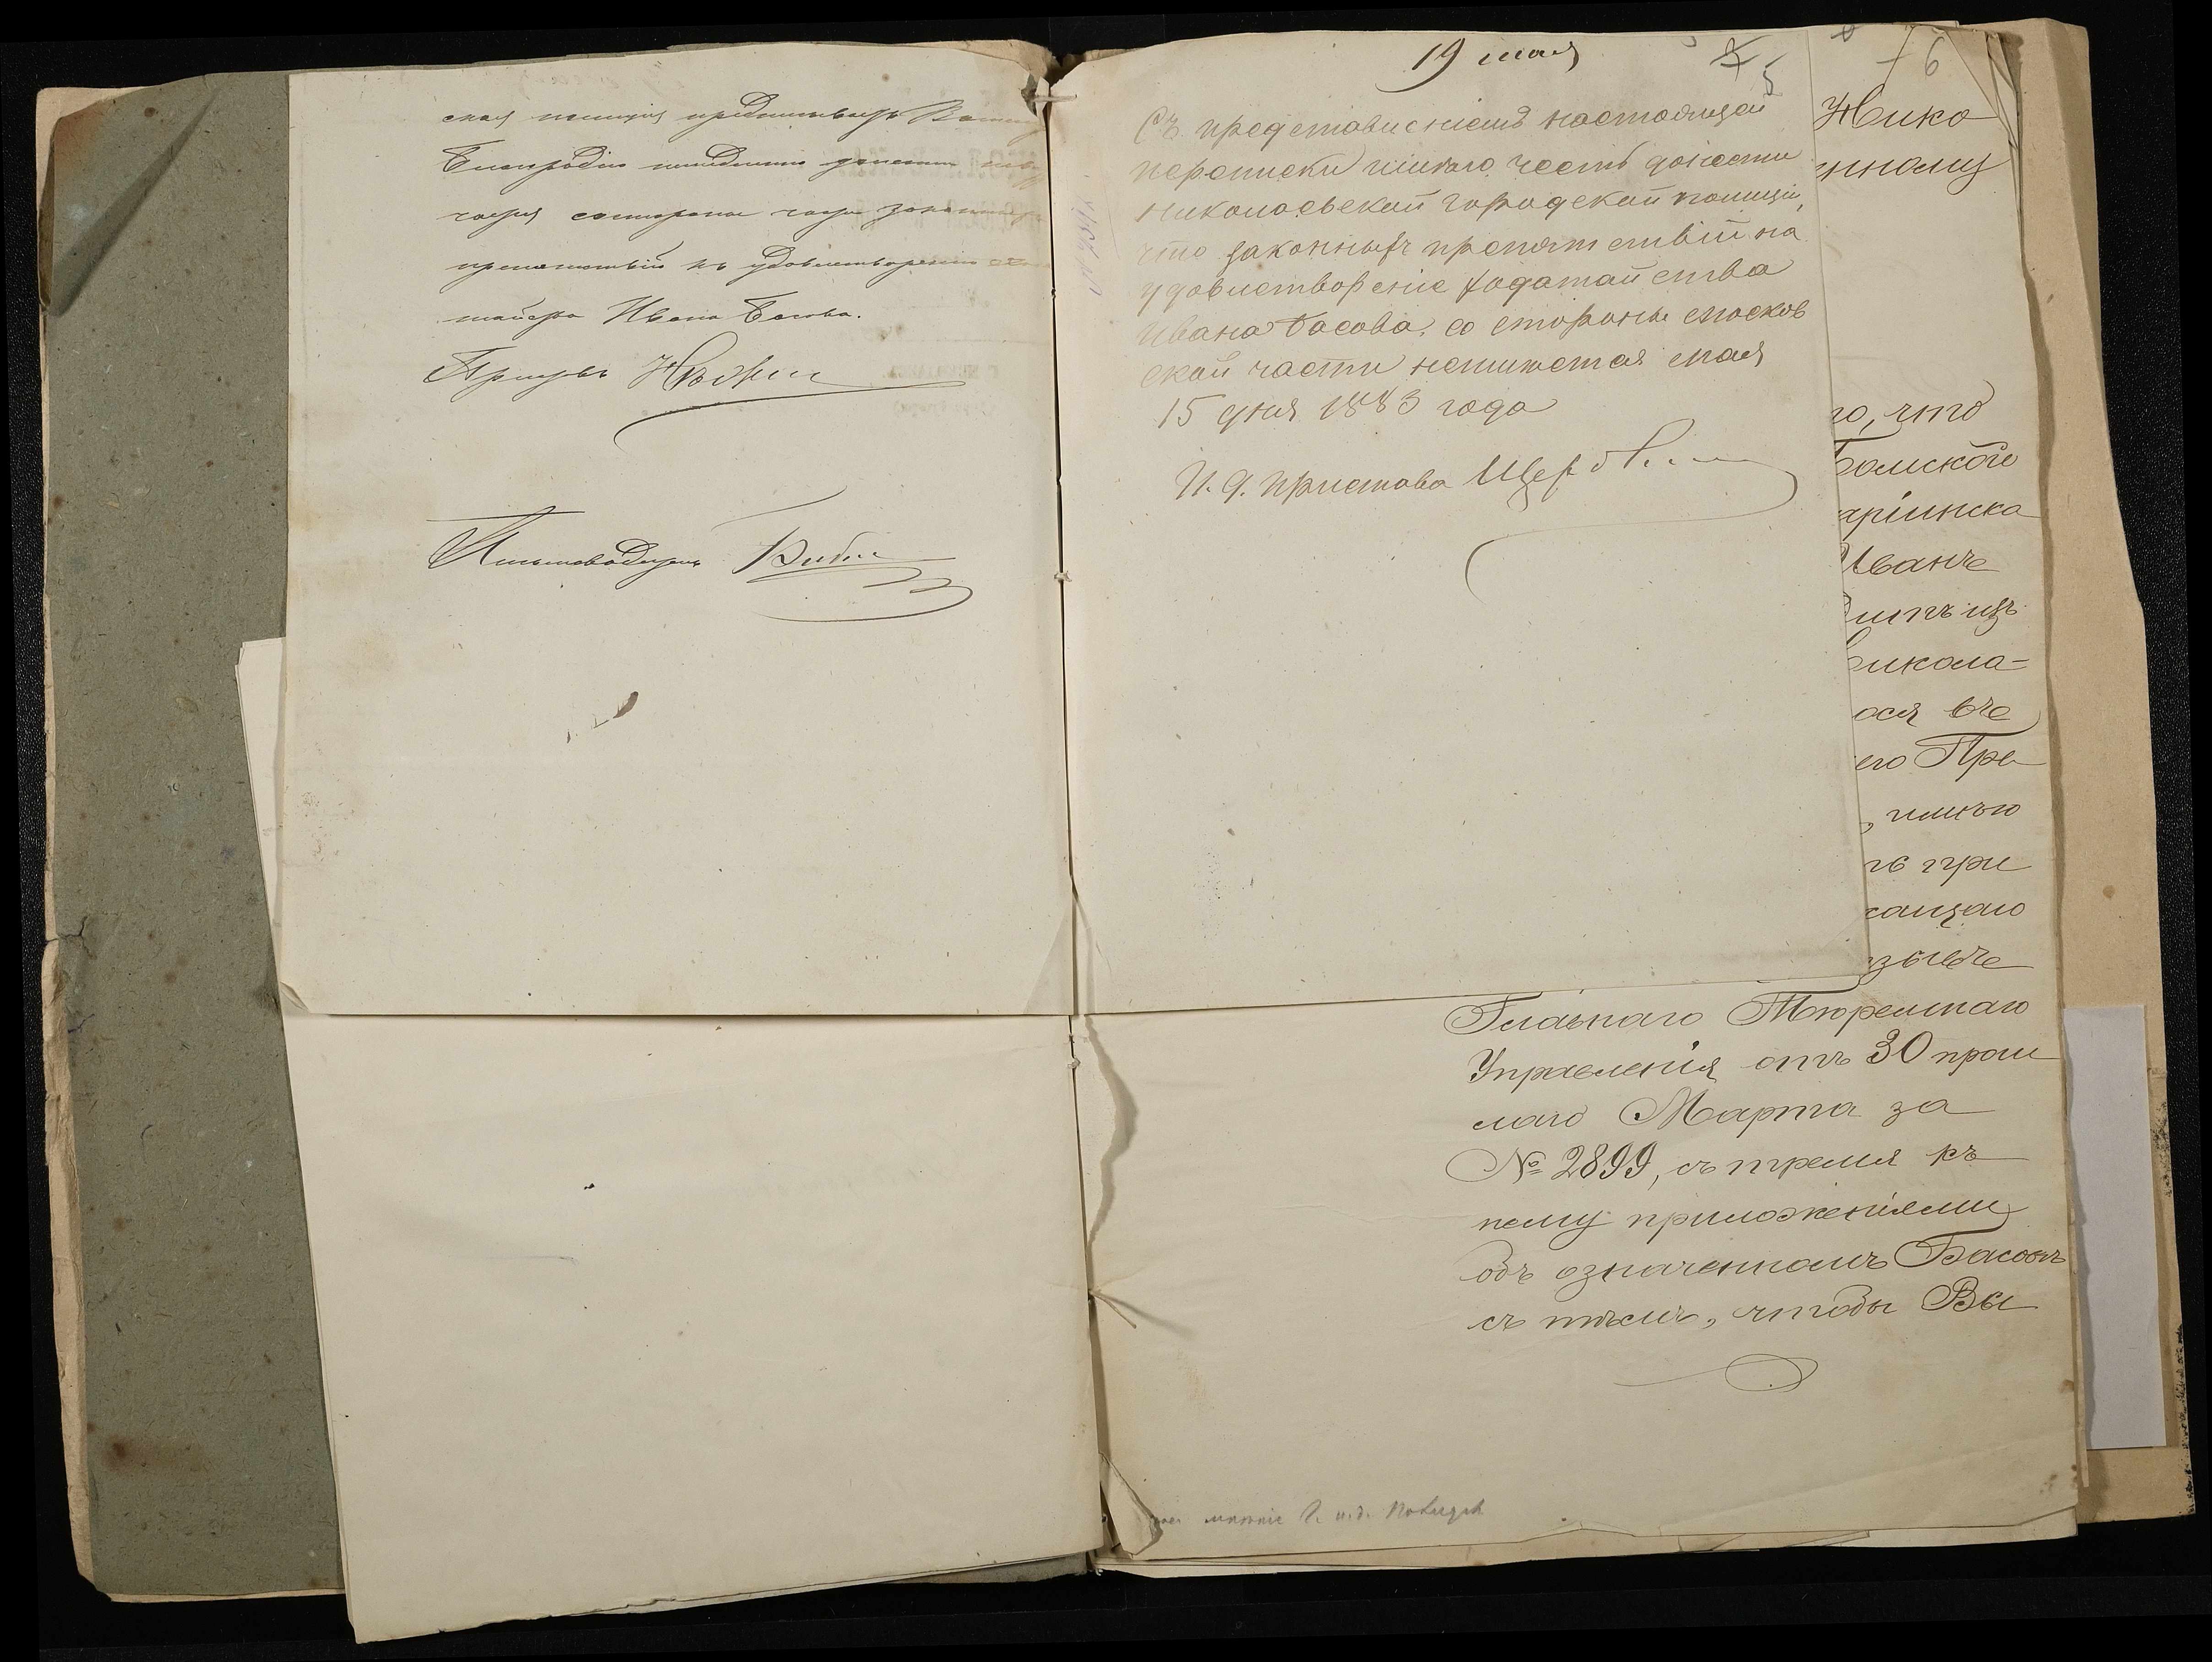 ская полиція предписываетъ
Благородію немедленно донести
части законныхъ
препятствій къ удовлетворенію
Ивана Басова.
Письмоводитель
19 мая
5
Съ представленіемъ настоящей
переписки имѣю честь донести
Николаевской городской полиціи,
что законныхъ препятствій на
удовлетвореніе ходатайства
Ивана Басова, со стороны Москов
ской части неимѣется мая
15 дня 1883 года
И. д. Пристава
6
Нико
нному
го, что
Томской
аріинска
Иванѣ
изъ
никола-
ося въе
его Пре
, имѣю
тъ при
сандаю
зывѣ
Главнаго Тюремнаго
Управленія отъ 30 прош
лаго Марта за
№ 2899, съ тремя къ
нему приложеніями
объ означенномъ Басовѣ
съ тѣмъ, чтобы Вы
мнѣніе Г. и.д.